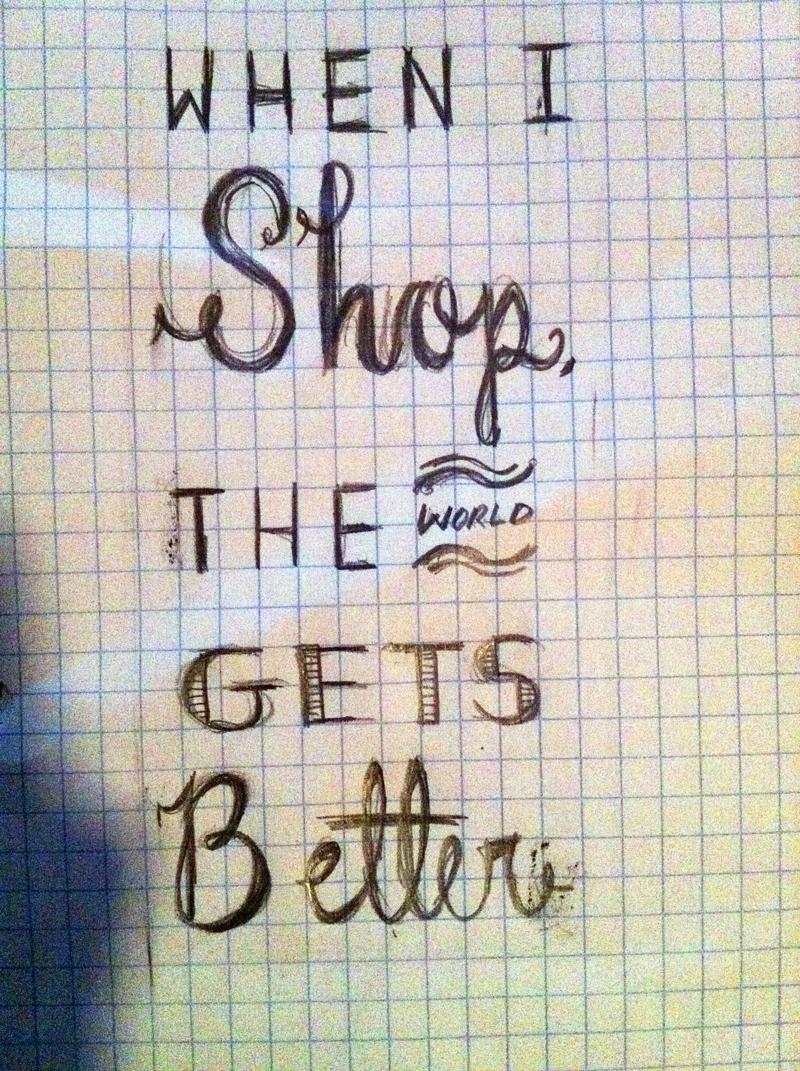 WHEN I
Shop,
THE WORLD
GETS
Better